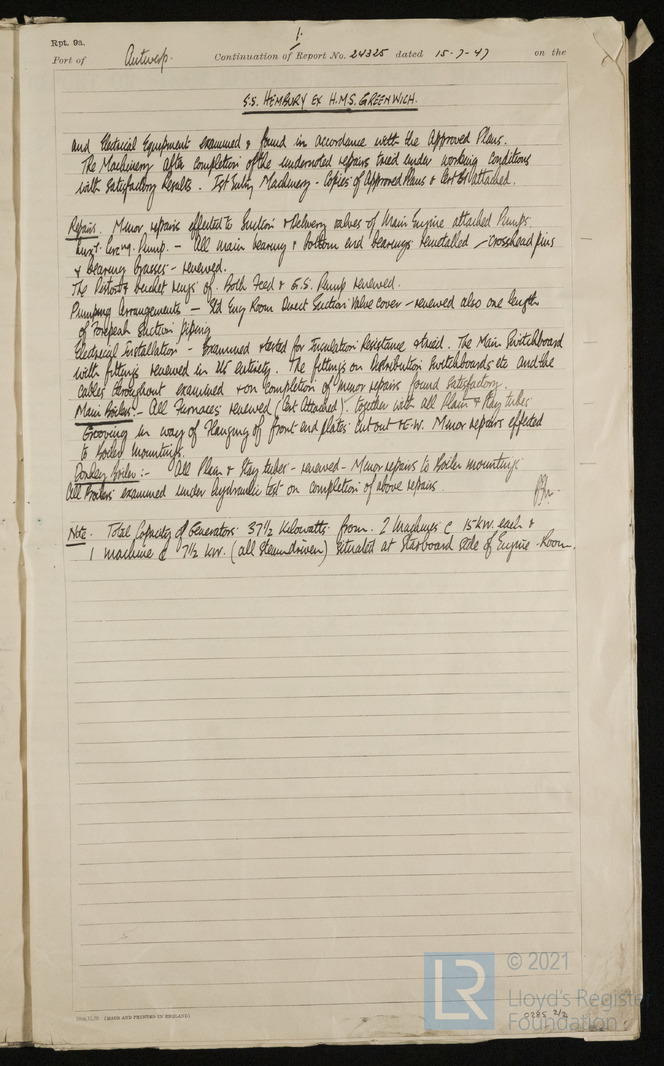 1.
Rpt. 9a.
Port of Antwerp. Continuation of Report No. 24325 dated 15-7-47 on the
S.S. HEMBURY EX H.M.S. GREENWICH.
and Electrical Equipment examined & found in accordance with the Approved Plans.
The Machinery after completion of the undernoted repairs tried under working conditions
with satisfactory Results. Ist Entry Machinery - Copies of Approved Plans & Cert attached.
Repairs. Minor repairs effected to Suction & Delivery valves of Main Engine attached Pumps.
Circ'ng. Pump. - All main bearing & bottom end bearings remetalled - Crosshead pins
& bearing brasses - renewed.
The Piston & bucket rings of Both Feed & G.S. Pump renewed.
Pumping Arrangements - Std Eng Room Direct Suction Valve cover - renewed also one length
of Forepeak Suction piping
Electrical Installation - Examined & tested for Insulation Resistance & tried. The Main Switchboard
with fittings renewed in its entirety. The fittings on Distribution Switchboards etc and the
cables throughout examined & on completion of minor repairs found satisfactory.
Main Boilers:- All Furnaces renewed (Cert Attached). together with all Plain & Stay tubes.
Grooving in way of Flanging of front end plates cut out & E.W. Minor repairs effected
to Boiler Mountings.
Donkey Boiler:- All Plain & Stay tubes - renewed - Minor repairs to Boiler mountings
All Boilers examined under hydraulic test on completion of above repairs.
Note. Total Capacity of Generators 37 1/2 Kilowatts from. 2 Machines @ 15 KW. each &
1 machine @ 7 1/2 KW. (all steam driven) situated at Starboard side of Engine Room.
(MADE AND PRINTED IN ENGLAND)
LR
© 2021
Lloyd's Register
Foundation
0285 2/2